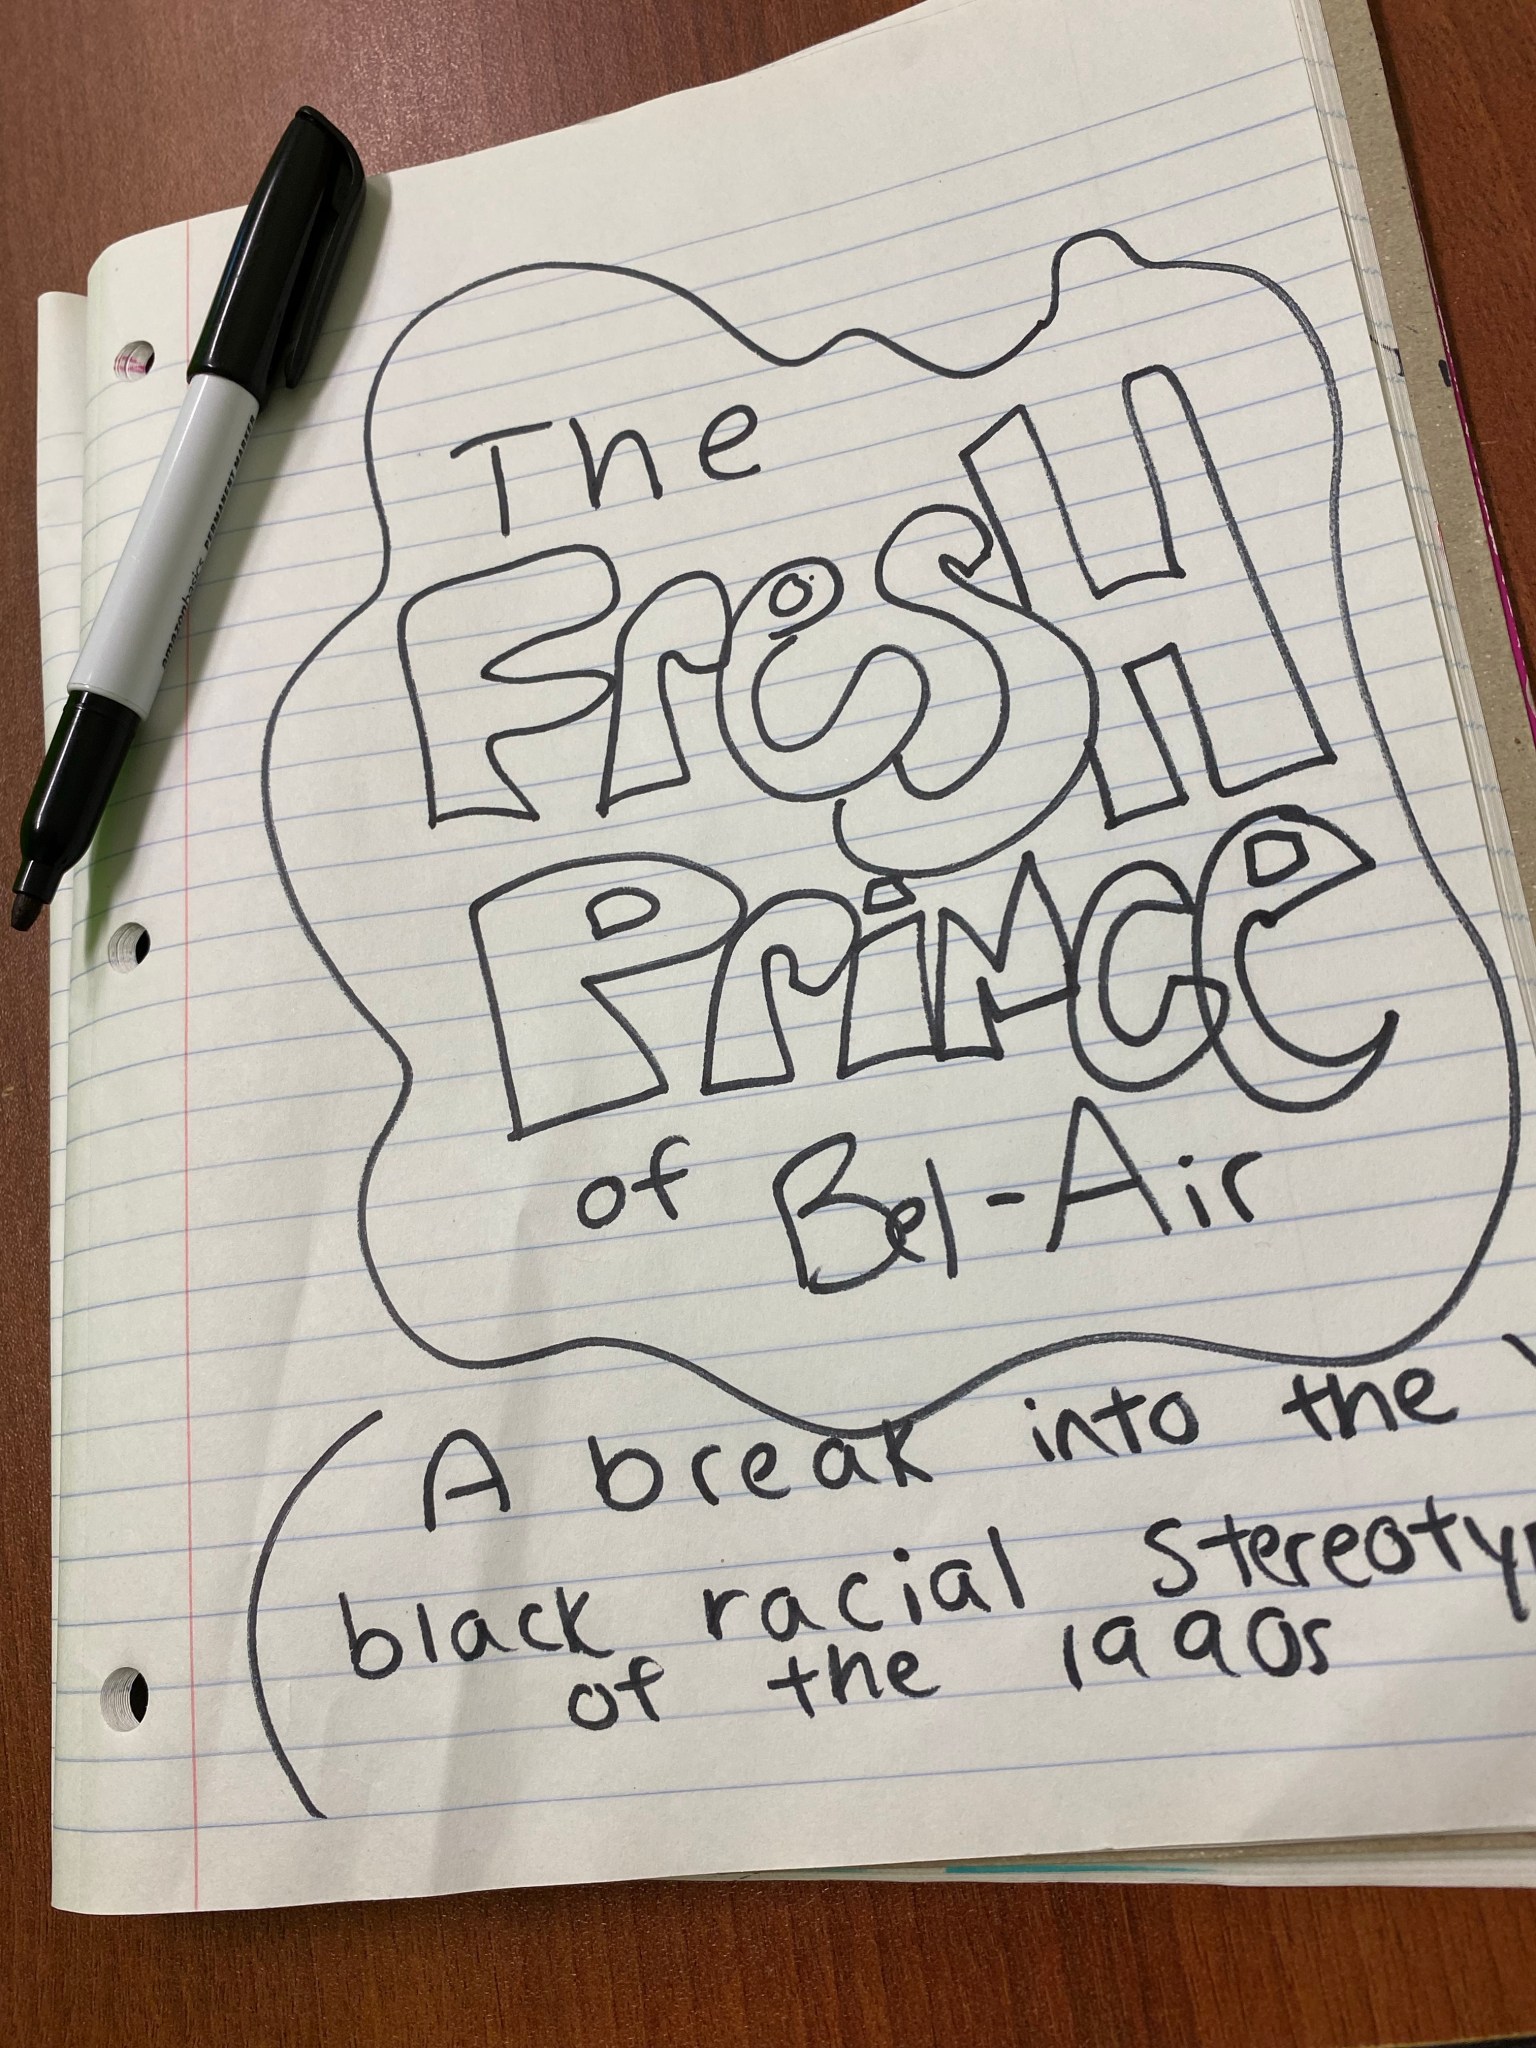 The
FresH
Prince
of Bel-Air
(A break into the
black racial
of the 1990s
amazonbasics PERMANENT MARKER